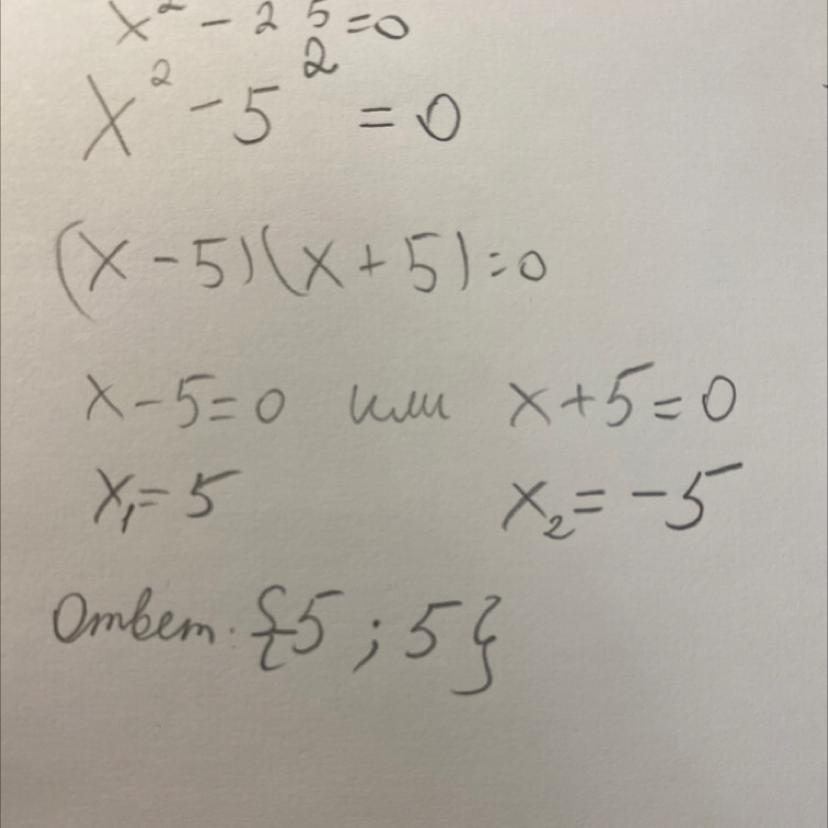 x² - 25 = 0
x² - 5² = 0
(x - 5)(x + 5) = 0
x - 5 = 0 или x + 5 = 0
x₁ = 5 x₂ = -5
Ответ: {-5 ; 5}